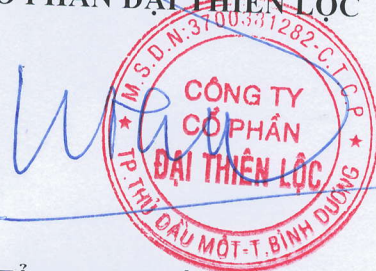 PHẦN ĐẠI THIÊN LỘC
M.S.D.N:3700331282-C.T.C.P
CÔNG TY
CỔ PHẦN
ĐẠI THIÊN LỘC
TP.THỦ DẦU MỘT-T.BÌNH DƯƠNG